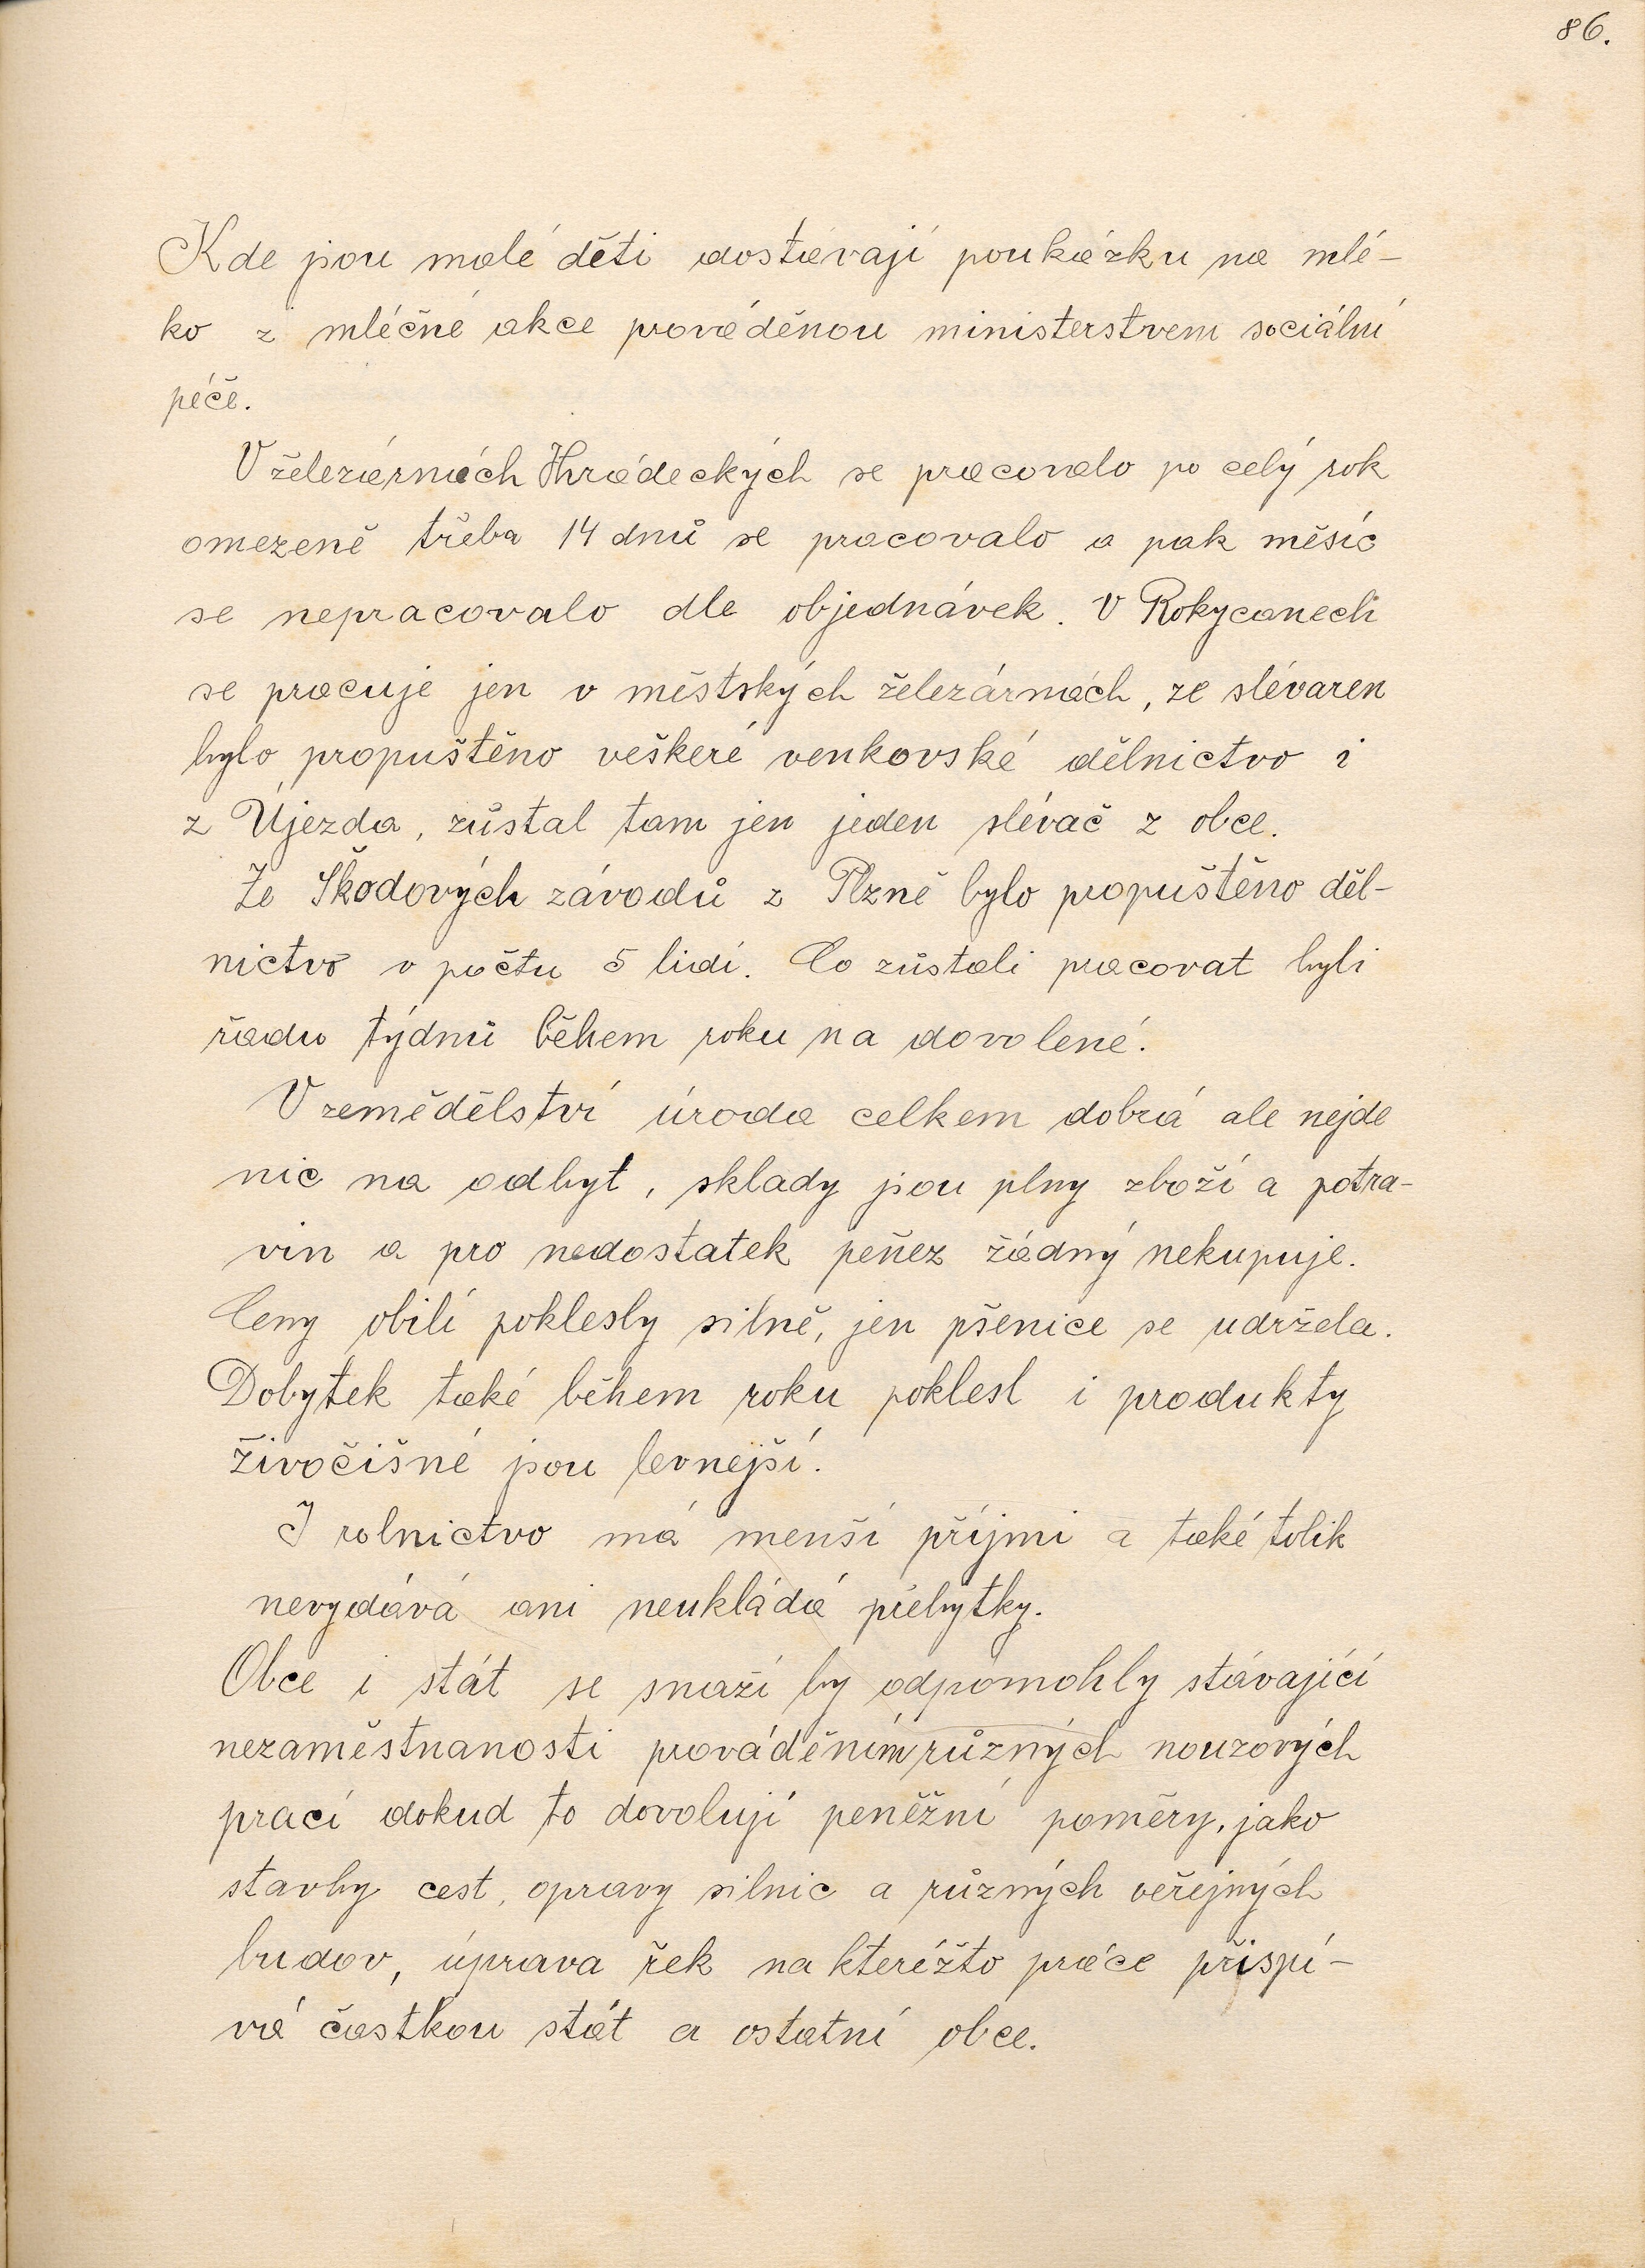 86.
Kde jsou malé děti dostávají poukázku na mlé-
ko z mléčné akce prováděnou ministerstvem sociální
péče.
V železárnách Hrádeckých se pracovalo po celý rok
omezeně třeba 14 dnů se pracovalo a pak měsíc
se nepracovalo dle objednávek. V Rokycanech
se pracuje jen v městských železárnách, ze slévaren
bylo propuštěno veškeré venkovské dělnictvo i
z Újezda, zůstal tam jen jeden slévač z obce.
Ze Škodových závodů z Plzně bylo propuštěno děl-
nictvo v počtu 5 lidí. Co zůstali pracovat byli
řadu týdnů během roku na dovolené.
V zemědělství úroda celkem dobrá ale nejde
nic na odbyt, sklady jsou plny zboží a potra-
vin a pro nedostatek peňez žádný nekupuje.
Ceny obilí poklesly silně, jen pšenice se udržela.
Dobytek také během roku poklesl i produkty
živočišné jsou levnejší.
I rolnictvo má menší příjmi a také tolik
nevydává ani neukládá přebytky.
Obce i stát se snaží by odpomohly stávající
nezaměstnanosti prováděním různých nouzových
prací dokud to dovolují peněžní poměry, jako
stavby cest, opravy silnic a různých veřejných
budov, úprava řek na kteréžto práce přispí-
vá častkou stát a ostatní obce.